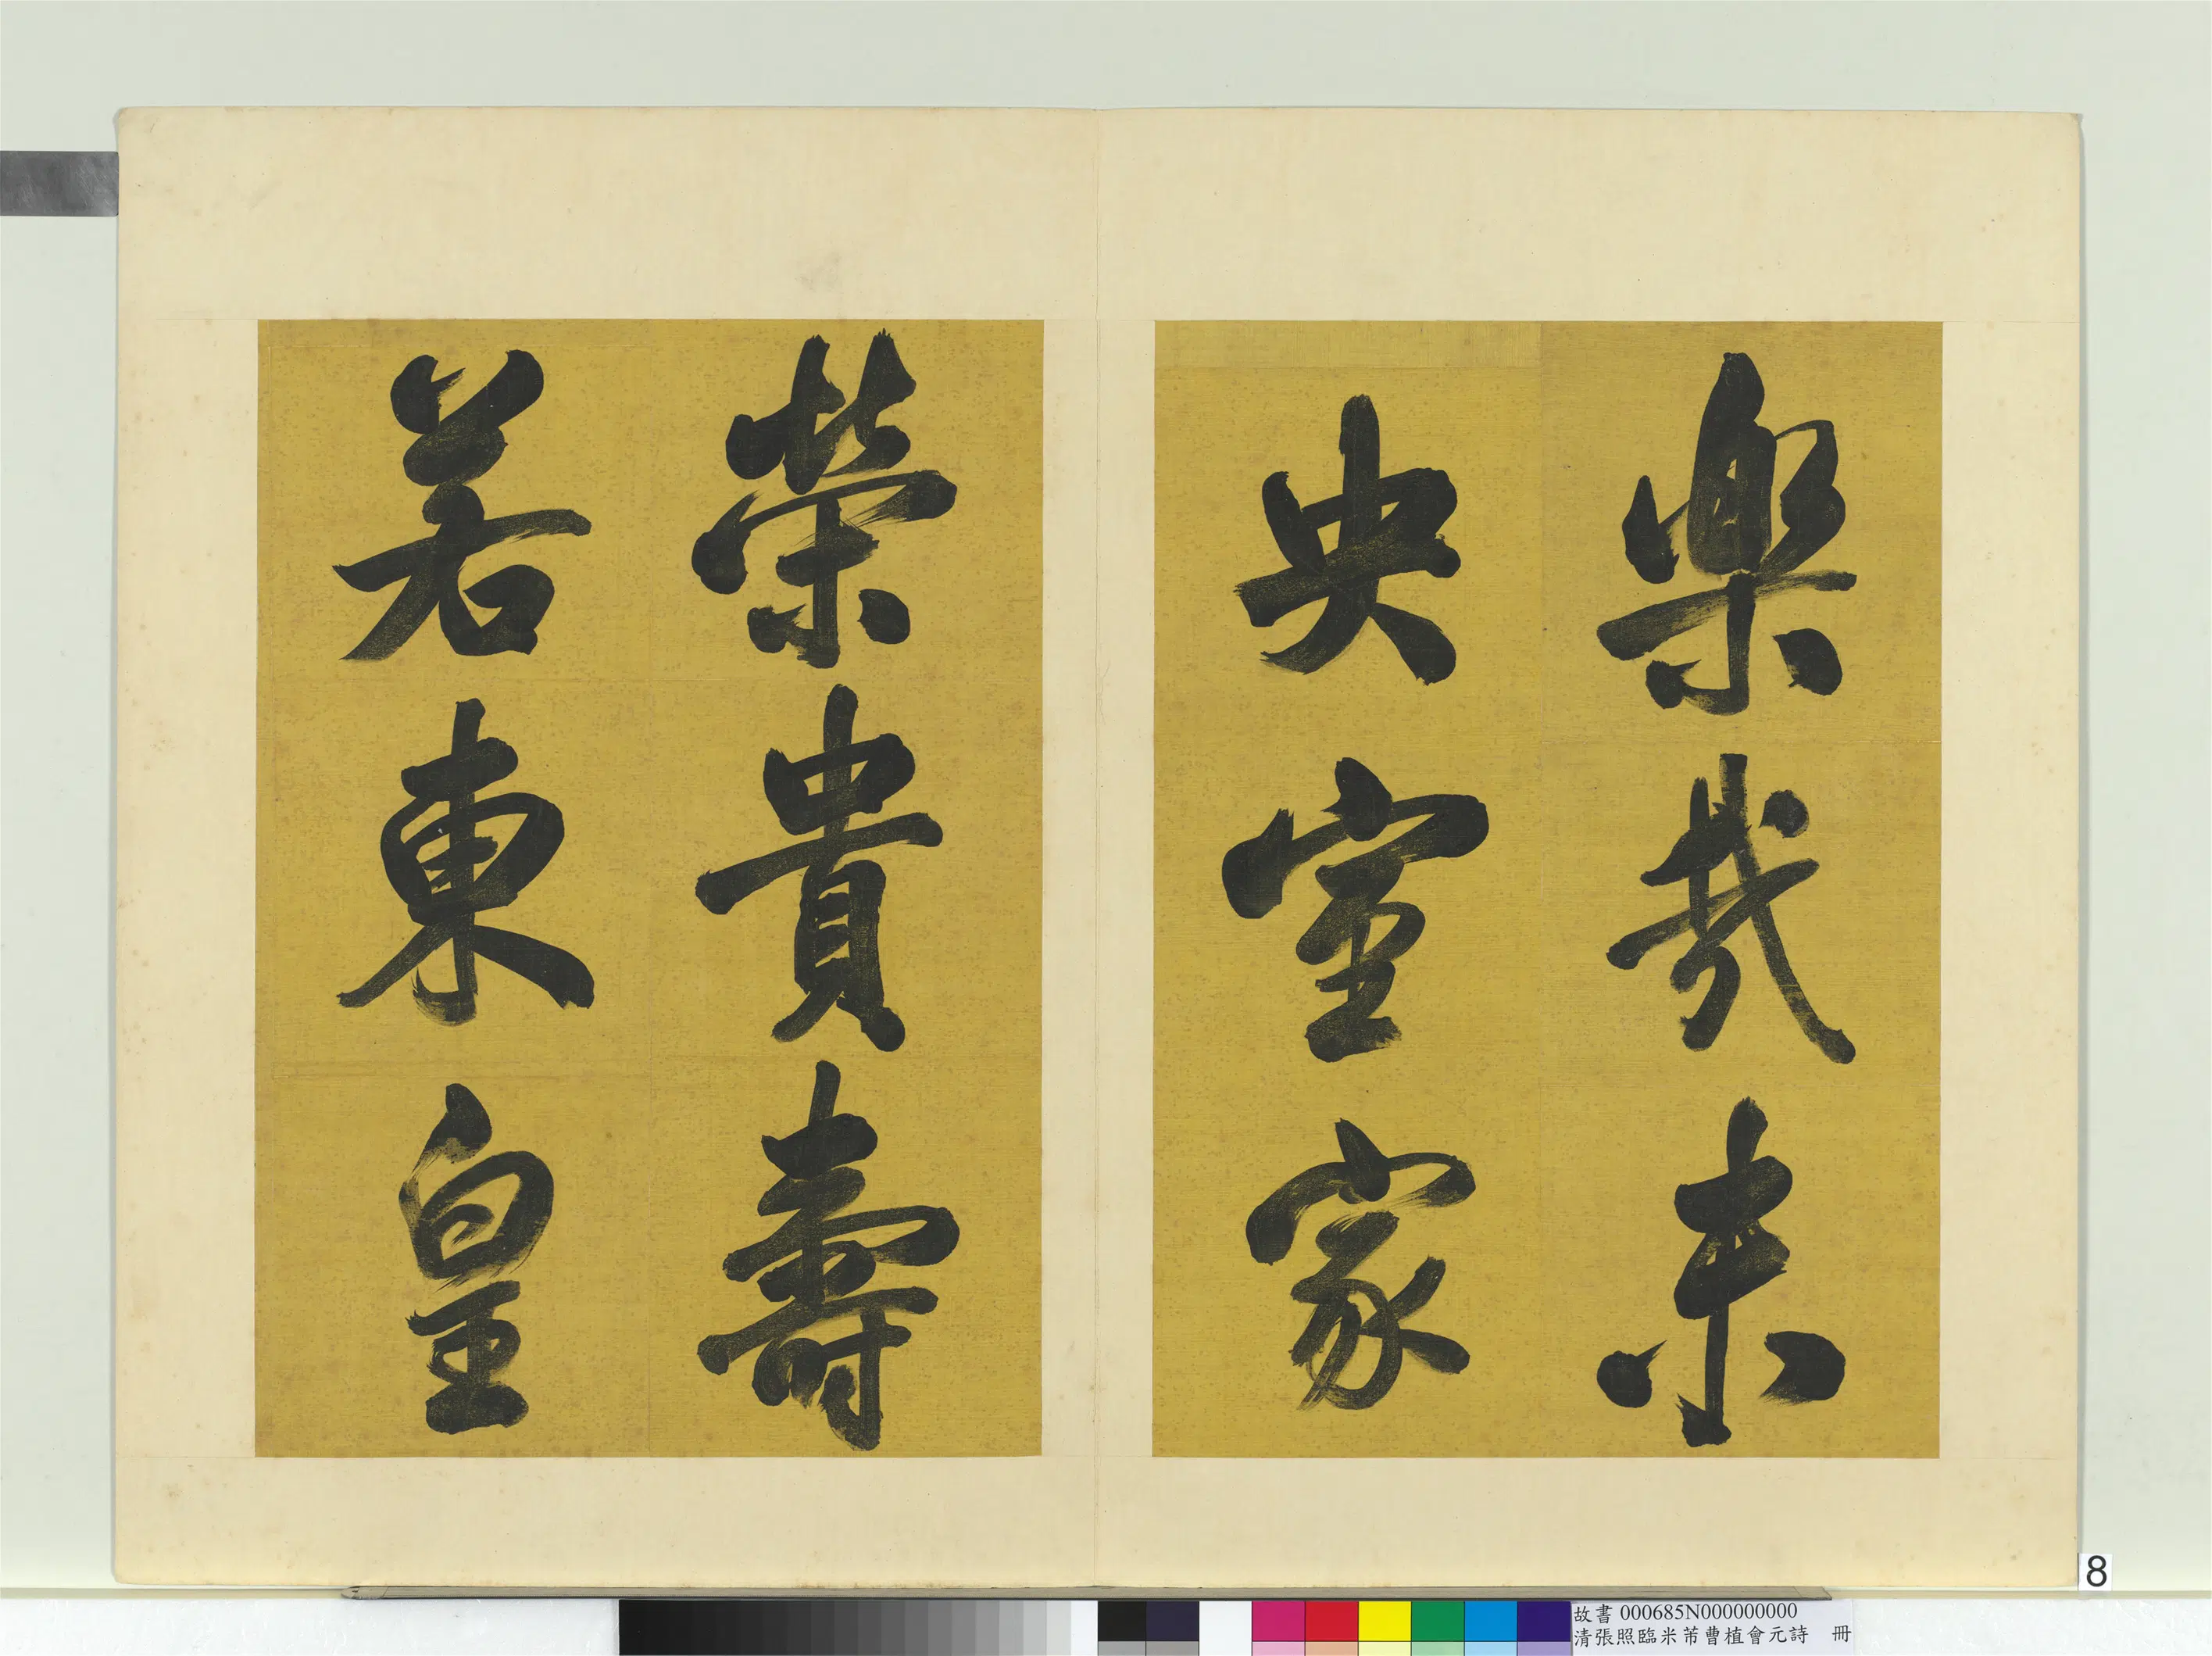 樂哉未
央室家
榮貴壽
若東皇
8
故書 000685N000000000
清張照臨米芾曹植會元詩 冊